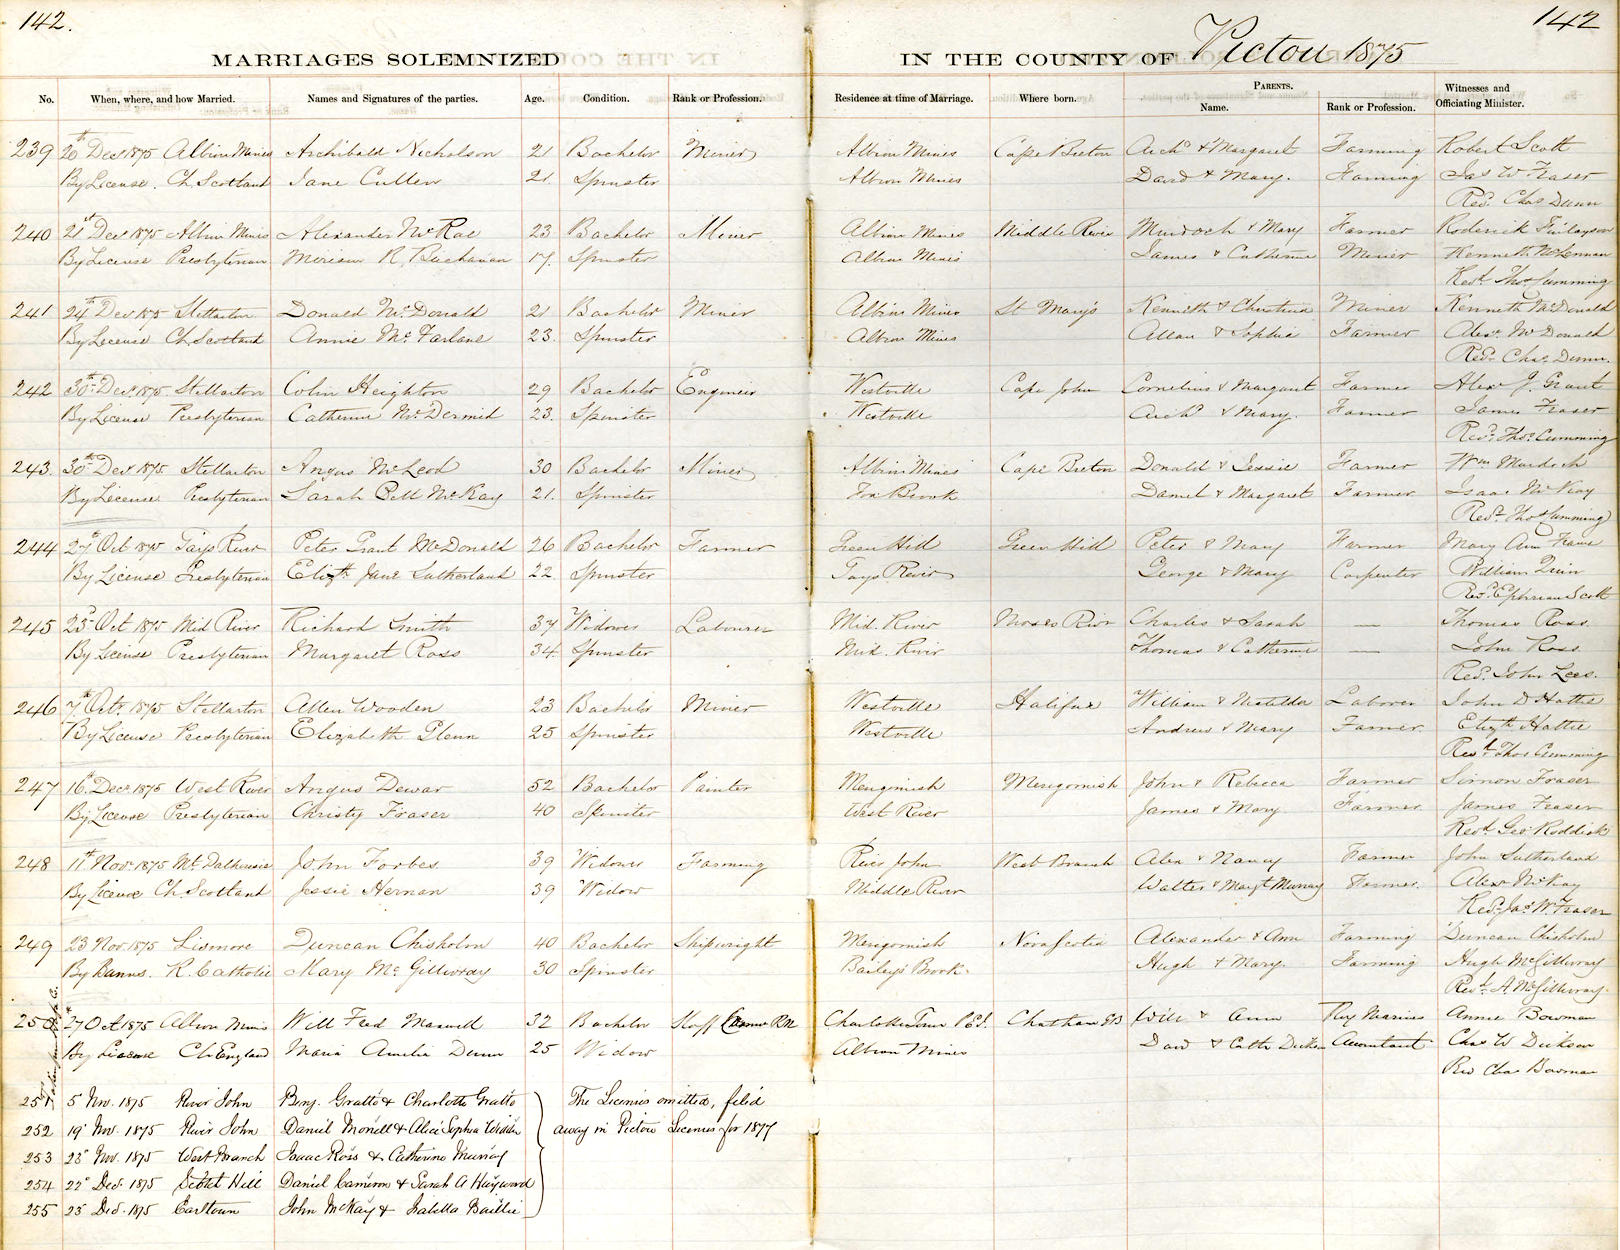 142. 142
MARRIAGES SOLEMNIZED IN THE COUNTY OF Pictou 1875
No. When, where, and how Married. Names and Signatures of the parties. Age. Condition. Rank or Profession. Residence at time of Marriage. Where born. PARENTS. Name. Rank or Profession. Witnesses and Officiating Minister.
239 20th Decr 1875 Albion Mines Archibald Nicholson 21 Bachelor Miner Albion Mines Cape Breton Archd & Margaret Farming Robert Scott
By License. Ch. Scotland Jane Cullen 21. Spinster Albion Mines David & Mary. Farming Jas W. Fraser
Revd. Chas Dunn
240 21st Decr 1875 Albion Mines Alexander McRae 23 Bachelor Miner Albion Mines Middle River Murdoch & Mary Farmer Roderick Finlayson
By License Presbyterian Meriam R. Buchanan 17. Spinster Albion Mines James & Catherine Miner Kenneth McLennan
Revd. Thos Cumming
241 24th Decr 1875 Stellarton Donald McDonald 21 Bachelor Miner Albion Mines St Mary's Kenneth & Christina Miner Kenneth McDonald
By License Ch. Scotland Annie McFarlane 23. Spinster Albion Mines Allan & Sophia Farmer Alexr McDonald
Revd. Chas Dunn.
242 30th Decr 1875 Stellarton Colin Heighton 29 Bachelor Engineer Westville Cape John Cornelius & Margaret Farmer Alexr J. Grant
By License Presbyterian Catherine McDermid 23. Spinster Westville Archd & Mary. Farmer James Fraser
Revd. Thos. Cumming
243. 30th Decr 1875 Stellarton Angus McLeod 30 Bachelor Miner Albion Mines Cape Breton Donald & Jessie Farmer Wm Murdoch
By License Presbyterian Sarah Bell McKay 21. Spinster Fox Brook Daniel & Margaret Farmer Isaac McKay
Revd. Thos Cumming
244 27th Oct 1875 Tays River Peter Grant McDonald 26 Bachelor Farmer Green Hill Green Hill Peter & Mary Farmer Mary Ann Frame
By License Presbyterian Elizth Jane Sutherland 22. Spinster Tays River George & Mary Carpenter William Quin
Revd. Ephriam Scott
245 23d Oct 1875 Mid River Richard Smith 37 Widower Labourer Mid. River Moses River Charles & Sarah — Thomas Ross.
By License Presbyterian Margaret Ross 34. Spinster Mid. River Thomas & Catherine — John Ross
Revd. John Lees.
246 7th Octr 1875 Stellarton Allen Wooden 23 Bachelor Miner Westville Halifax William & Matilda Laborer John D Hattie
By License Presbyterian Elizabeth Glenn 25 Spinster Westville Andrew & Mary Farmer. Elizth Hattie
Revd. Thos Cumming
247 16th Decr 1875 West River Angus Dewar 52 Bachelor Painter Merigomish Merigomish John & Rebecca Farmer Simon Fraser
By License Presbyterian Christy Fraser 40 Spinster West River James & Mary Farmer James Fraser
Revd. Geo. Roddick
248 11th Novr 1875 Mt. Dalhousie John Forbes 39 Widower Farming River John West Branch Alex & Nancy Farmer John Sutherland
By License Ch. Scotland Jessie Hernan 39 Widow Middle River Walter & Margt Murray Farmer. Alexr McKay
Revd. Jas. W. Fraser
249 23 Nov. 1875 Lismore Duncan Chisholm 40 Bachelor Shipwright Merigomish Nova Scotia Alexander & Ann Farming Duncan Chisholm
By Banns. R. Catholic Mary McGillivray 30 Spinster Bailey's Brook. Hugh & Mary. Farming Hugh McGillivray
Revd. A. McGillivray.
250 27th Oct 1875 Albion Mines Will Fred Maxwell 32 Bachelor Staff Commr RN Charlotte Town P.E.I. Chatham GB Will & Ann Roy Marines Annie Bowman
By License Ch. England Maria Amelia Dunn 25 Widow Albion Mines Davd & Cath Dickson Accountant Chas W Dickson
Rev Chas Bowman
251 5 Nov. 1875 River John Benj. Gratto & Charlotte Gratto The Licenses omitted, filed
252 19 Nov. 1875 River John Daniel Morrell & Alice Sophia away in Pictou Licenses for 1877
253 23 Nov. 1875 West Branch Isaac Ross & Catherine Murray
254 22d Dec. 1875 Hill Daniel Cameron & Sarah A Hayward
255 23 Dec. 1875 Earltown John McKay & Isabella Baillie